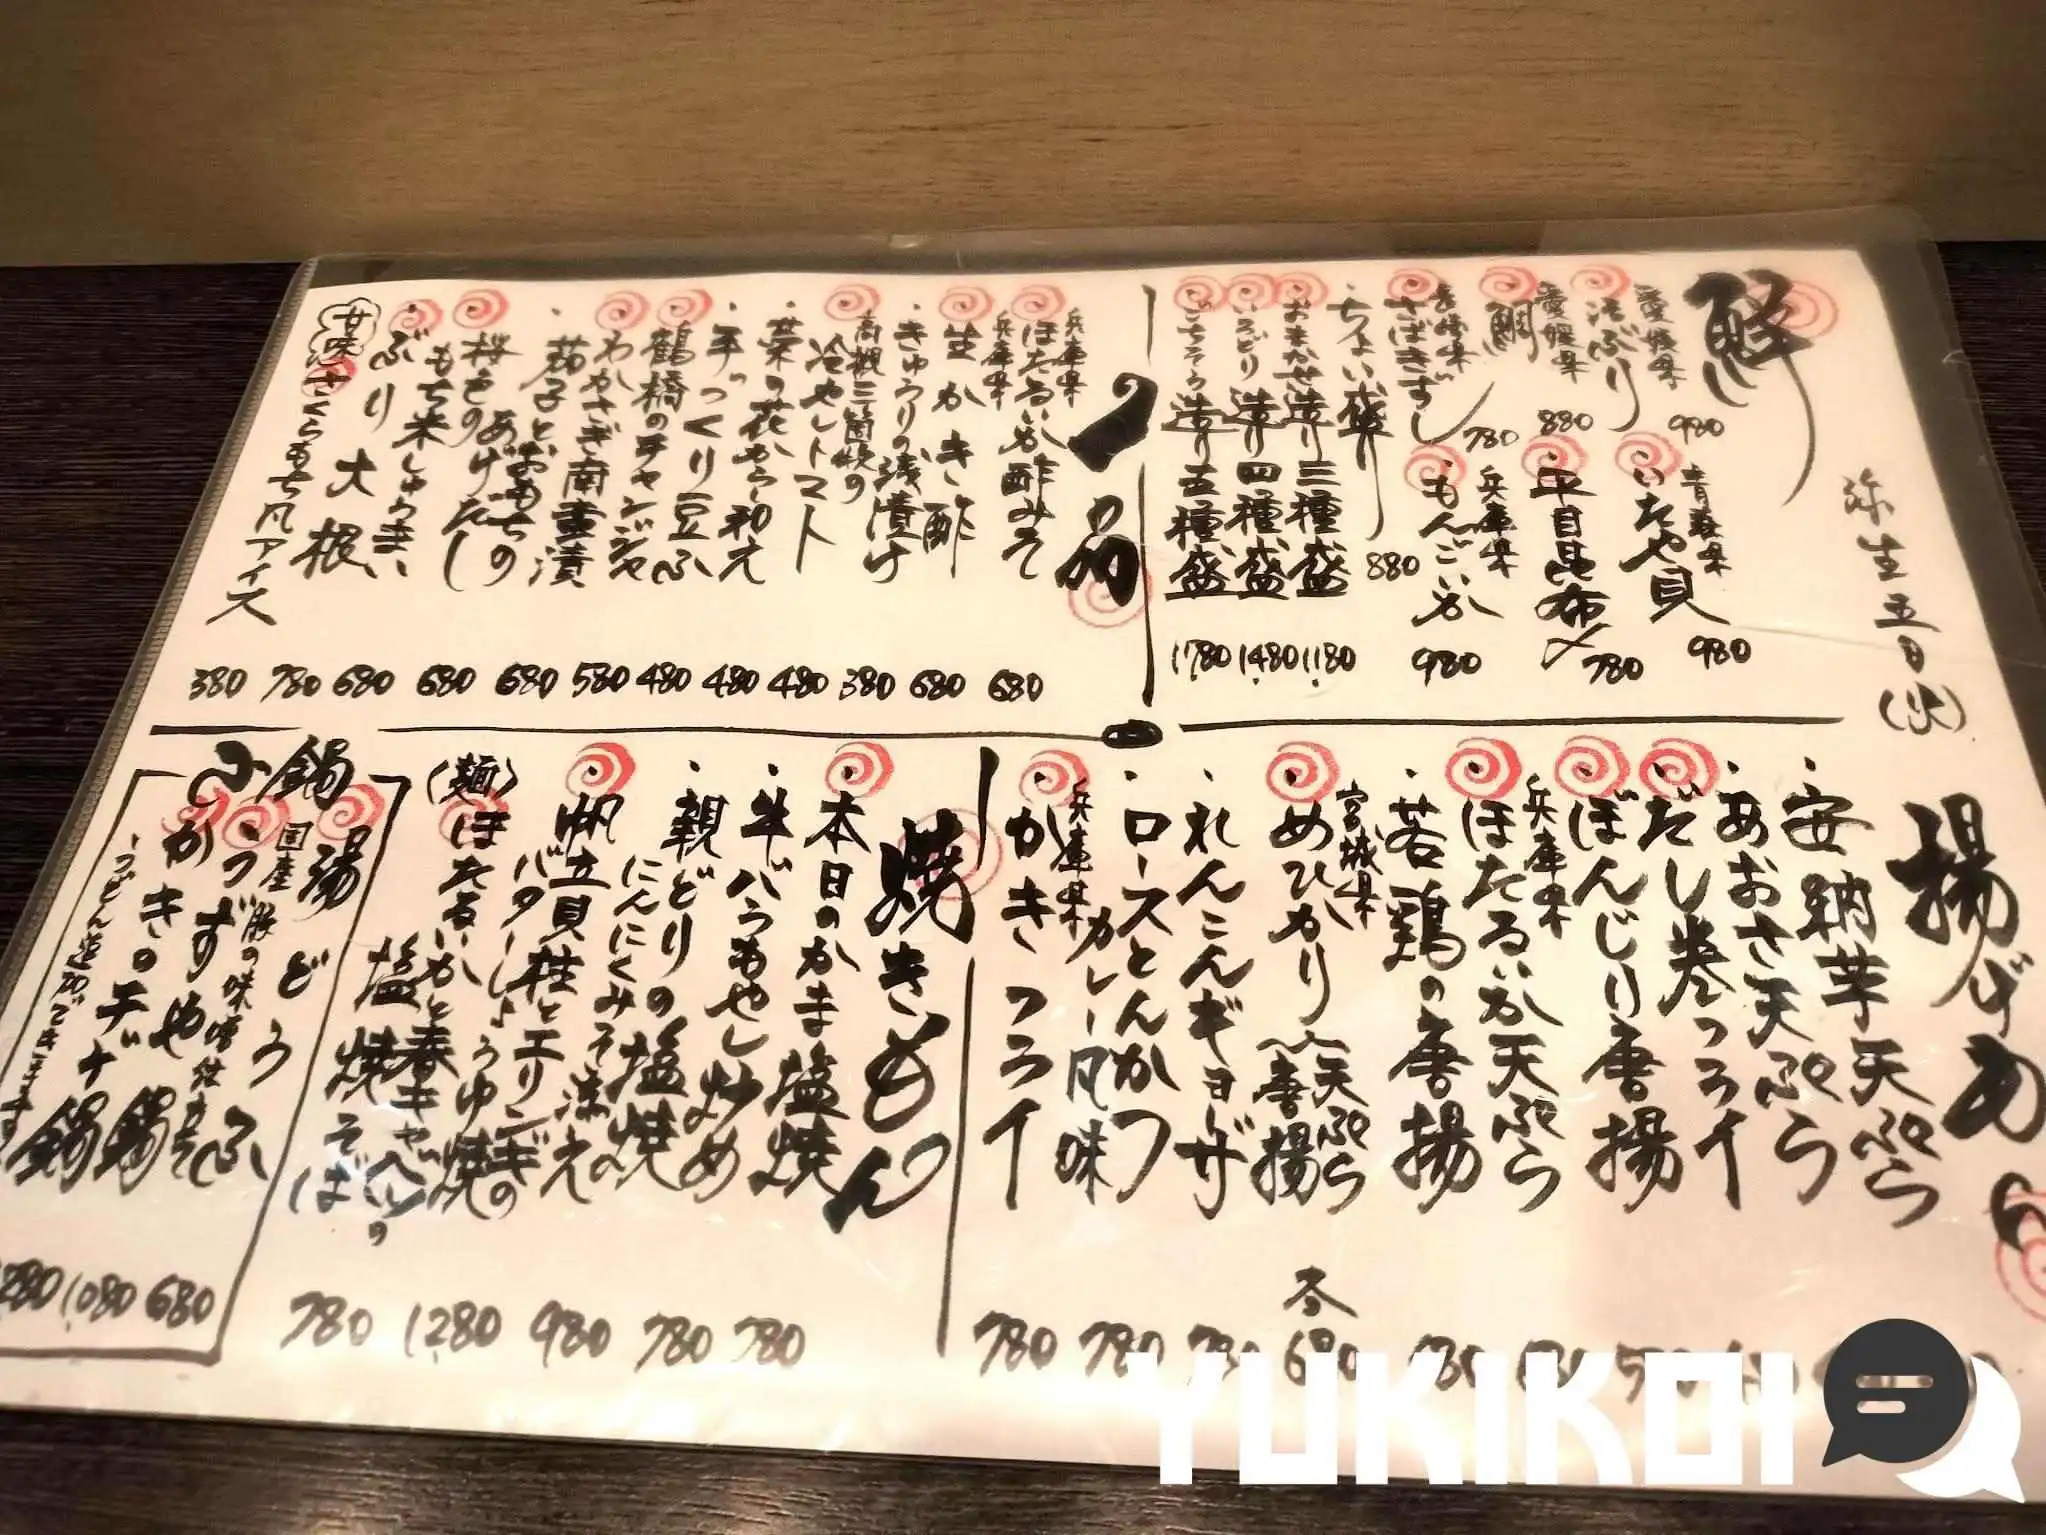 弥生五日(火)
鮮
愛媛県
活ぶり
980
愛媛県
鯛
880
長崎県
さばきずし
780
青森県
いたや貝
980
平目昆布〆
780
兵庫県
もんごいか
980
ちょい盛り
880
おまかせ造り三種盛
1180
いろどり造り四種盛
1480
ごちそう造り五種盛
1780
一品
兵庫県
ほたるいか酢みそ
680
兵庫県
生かき酢
680
きゅうりの浅漬け
380
高槻三箇牧の
冷やしトマト
480
菜の花から和え
480
手づくり豆ふ
480
鶴橋のチャンジャ
580
わかさぎ南蛮漬
680
茄子とおもちの
あげだし
680
桜色の
もち米しゅうまい
680
ぶり大根
780
甘味
さくらもち風アイス
380
揚げもの
安納芋天ぷら
あおさ天ぷら
だし巻フライ
ぼんじり唐揚
兵庫県
ほたるいか天ぷら
若鶏の唐揚
宮城県
めひかり
天ぷら
唐揚
各
680
れんこんギョーザ
ロースとんかつ
カレー風味
780
兵庫県
かきフライ
780
焼きもん
本日のかま塩焼
牛バラもやし炒め
780
親どりの塩焼
にんにくみそ添え
780
帆立貝柱とエリンギの
バターしょうゆ焼
980
(麺)
ほたるいかと春キャベツの
塩焼そば
780
小鍋
湯どうふ
680
国産豚の味噌仕立て
かきのチゲ鍋
うどん追加できます
1080
1280
YUKIKOI